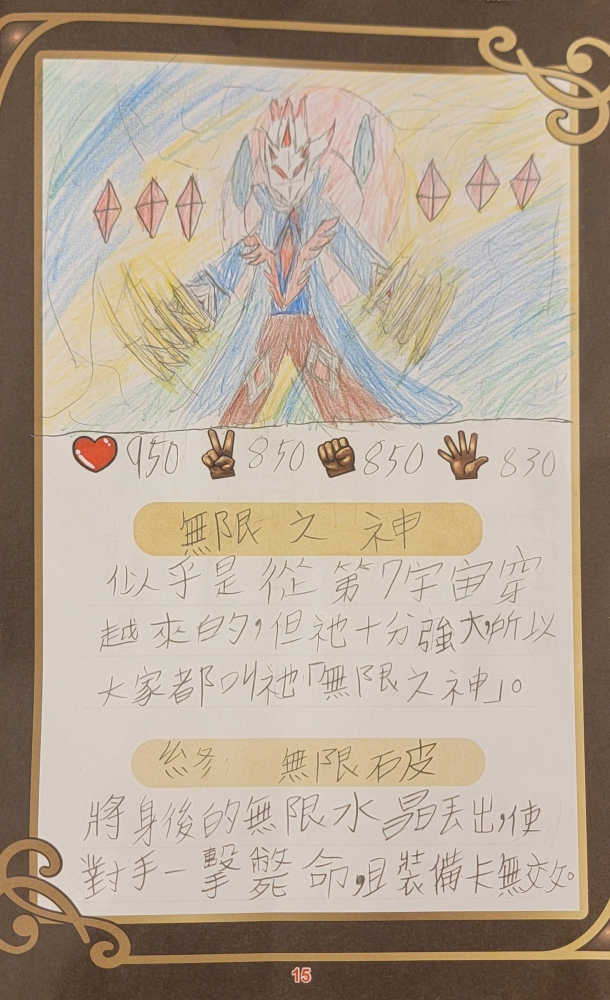 950 850 850 830
無限之神
似乎是從第7宇宙穿
越來的,但祂十分強大,所以
大家都叫祂「無限之神」。
終 無限石皮
將身後的無限水晶丟出,使
對手一擊斃命,且裝備卡無效。
15